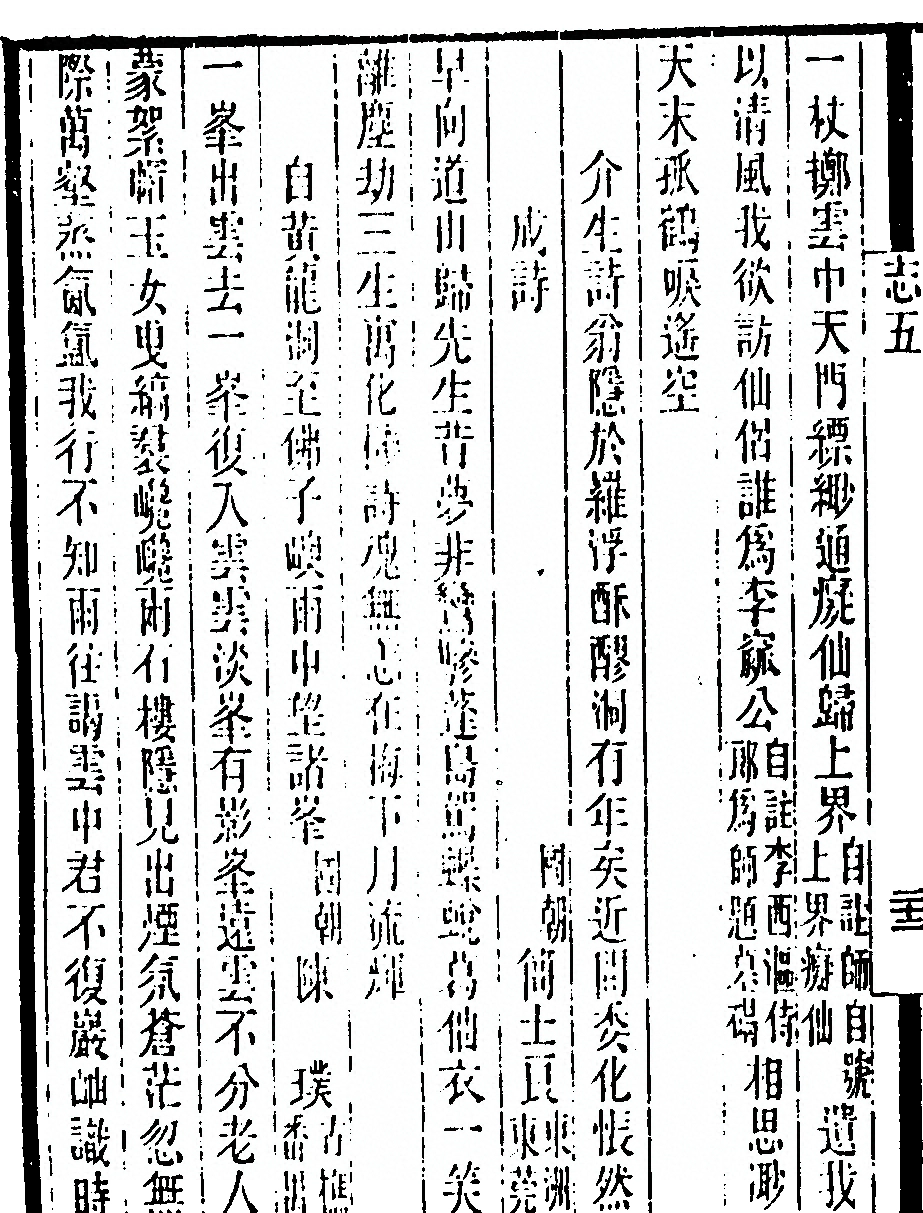 志五
一杖擲雲中天門縹緲通癡仙歸上界自註師自號上界癡仙遺我
以清風我欲訪仙侶誰為李竄公自註李西漚侍郎為師題墓碣相思渺
天末孤鶴唳遙空
介生詩翁隱於羅浮酥醪洞有年矣近聞委化悵然
成詩 國朝簡士良東洲東莞
早向道山歸先生昔夢非鸞驂蓬島駕蝶蛻葛仙衣一笑
離塵劫三生寓化詩魂無恙在梅下月流輝
自黃龍洞至佛子嶼雨中望諸峯 國朝陳璞古樵番禺
一峯出雲去一峯復入雲雲淡峯有影峯遠雲不分老人
蒙絮帽玉女曳縞裠巉巉兩石樓隱見出煙氛蒼茫忽無
際萬壑蒸氤氳我行不知雨往謁雲中君不復巖岫識時